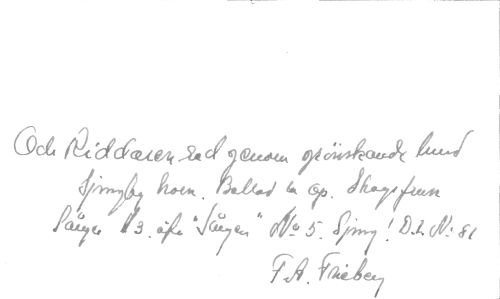 Och Riddaren red genom grönskande lund
horn. Ballad ur op. Skogsfrun
Sånger N3. "Sången" No 5. Sjung! D.L. No. 81
F.A. Frieberg